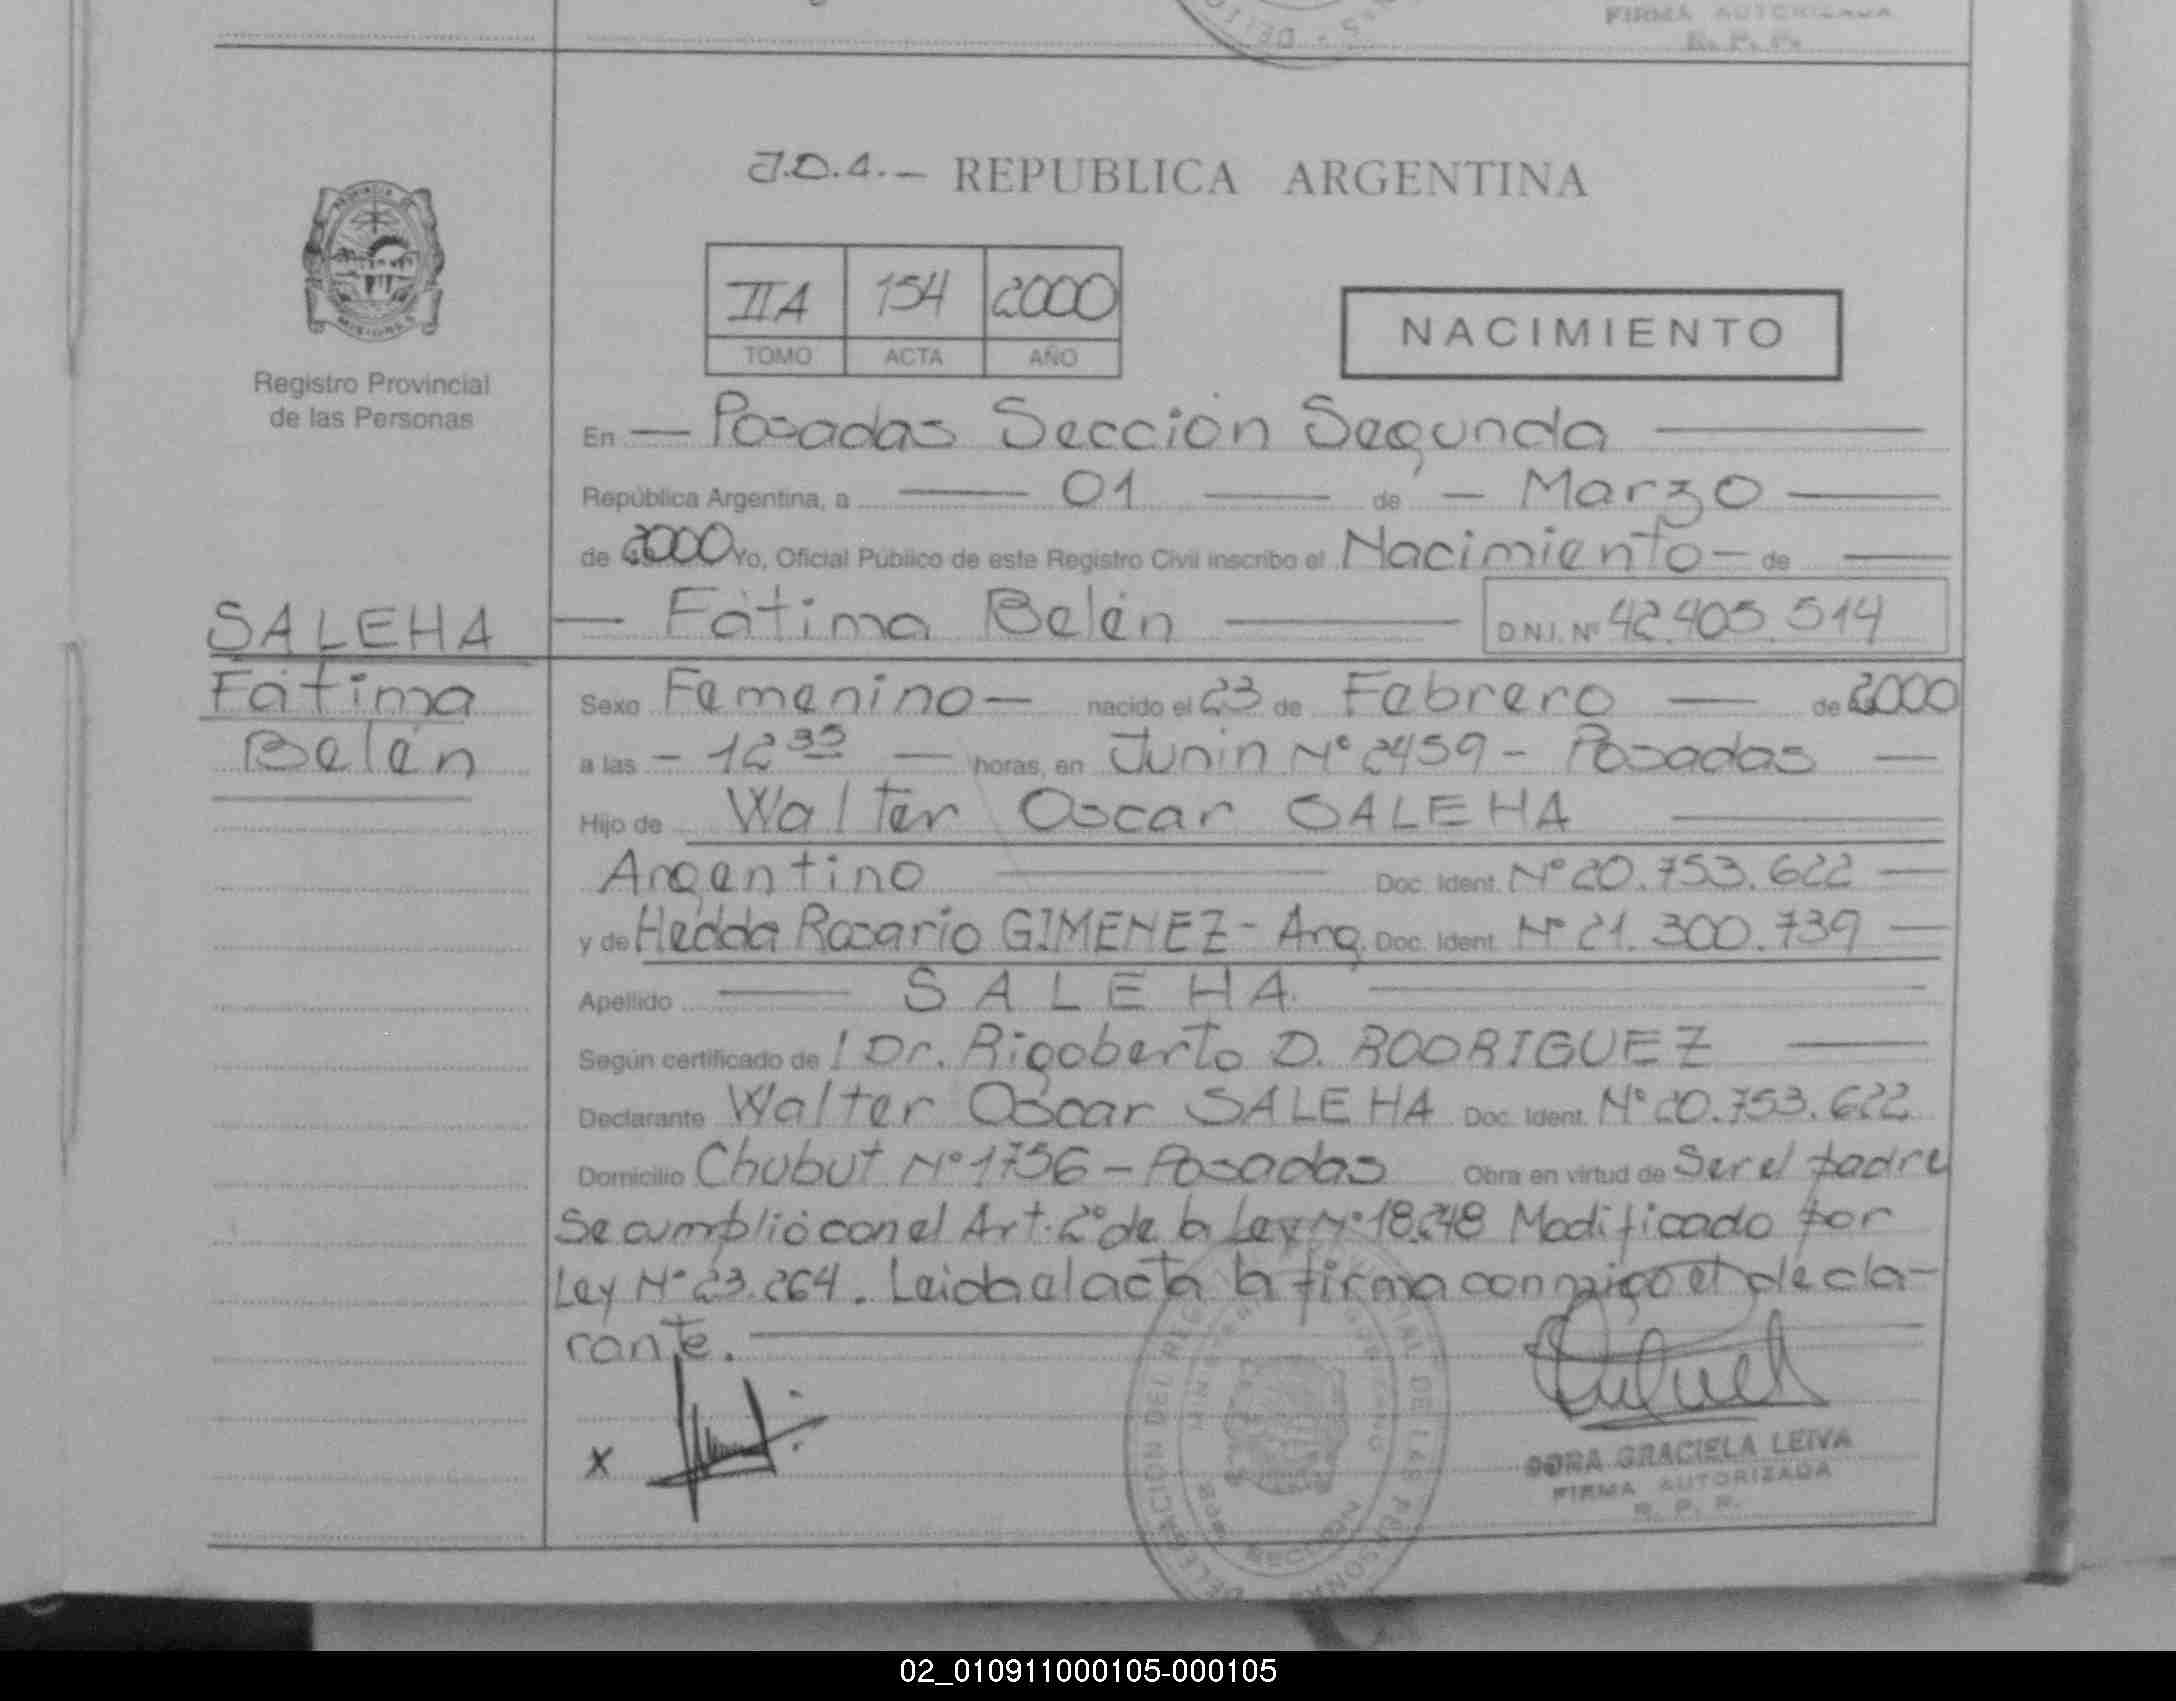 FIRMA AUTORIZADA
R. P. P.
J.D.A.- REPUBLICA ARGENTINA
PROVINCIA DE
MISIONES
IIA 154 2000
TOMO ACTA AÑO
NACIMIENTO
Registro Provincial
de las Personas
En — Posadas Sección Segunda —
República Argentina, a — 01 — de — Marzo —
de 2000 Yo, Oficial Público de este Registro Civil inscribo el Nacimiento — de —
SALEHA
Fátima
Belén
— Fátima Belén — D.N.I. Nº 42.405.514
Sexo Femenino — nacido el 23 de Febrero — de 2000
a las - 12 35 — horas, en Junín Nº 2459 - Posadas —
Hijo de Walter Oscar SALEHA —
Argentino — Doc. Ident. Nº 20.753.622 —
y de Hedda Rosario GIMENEZ - Arg. Doc. Ident. Nº 21.300.739 —
Apellido — SALEHA. —
Según certificado de l Dr. Rigoberto D. RODRIGUEZ —
Declarante Walter Oscar SALEHA Doc. Ident. Nº 20.753.622
Domicilio Chubut Nº 1756 - Posadas Obra en virtud de Ser el padre
Se cumplió con el Art. 2º de la Ley Nº 18.248 Modificado por
Ley Nº 23.264. Leida el acta la firma conmigo el decla-
rante. —
x
DORA GRACIELA LEIVA
FIRMA AUTORIZADA
R. P. P.
DELEGACION DEL REGISTRO PROVINCIAL DE LAS PERSONAS
MINISTERIO DE GOBIERNO
SECCION
02_010911000105-000105